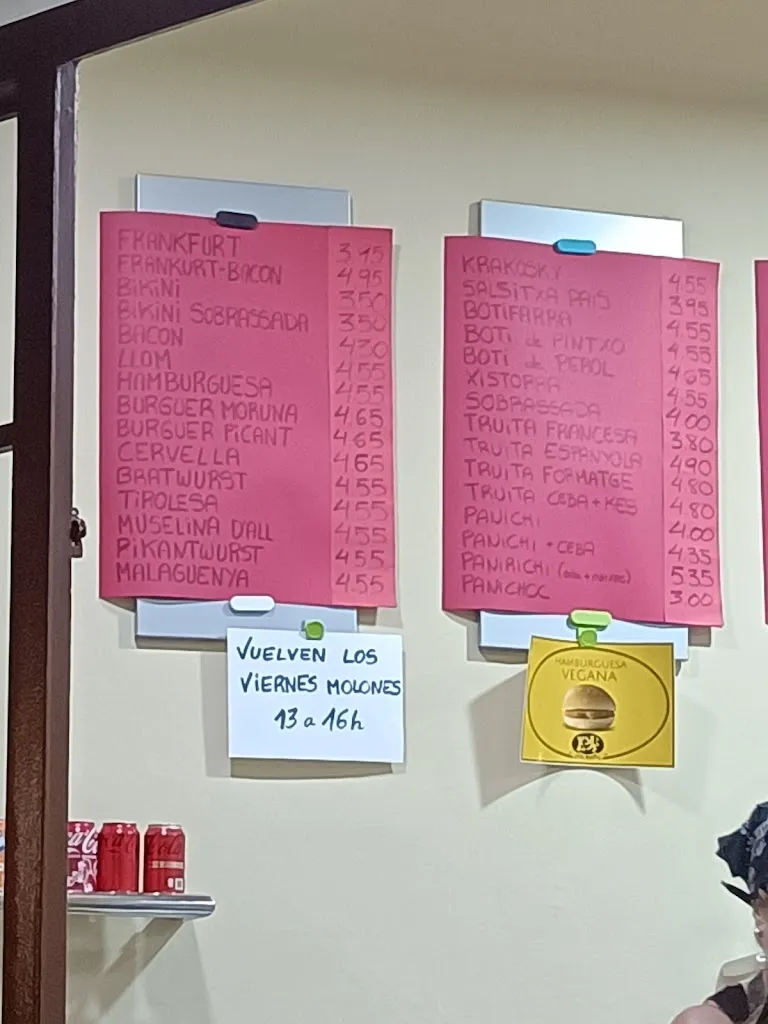 FRANKFURT
FRANKURT-BACON 4.95
BIKINI 3.50
BIKINI SOBRASSADA 3.50
BACON 4.30
LLOM 4.55
HAMBURGUESA 4.55
BURGUER MORUNA 4.65
BURGUER PICANT 4.65
CERVELLA 4.65
BRATWURST 4.55
TIROLESA 4.55
MUSELINA D'ALL 4.55
PIKANTWURST 4.55
MALAGUENYA 4.55
KRAKOSKY 4.55
SALSITXA PAIS 3.95
BOTIFARRA 4.55
BOTI de PINTXO 4.55
BOTI de PEROL 4.65
XISTORRA 4.55
SOBRASSADA 4.00
TRUITA FRANCESA 3.80
TRUITA ESPANYOLA 4.90
TRUITA FORMATGE 4.80
TRUITA CEBA+KES 4.80
PANICHI 4.00
PANICHI + CEBA 4.35
PANIRICHI 5.35
PANICHOC 3.00
VUELVEN LOS
VIERNES MOLONES
13 a 16h
HAMBURGUESA
VEGANA